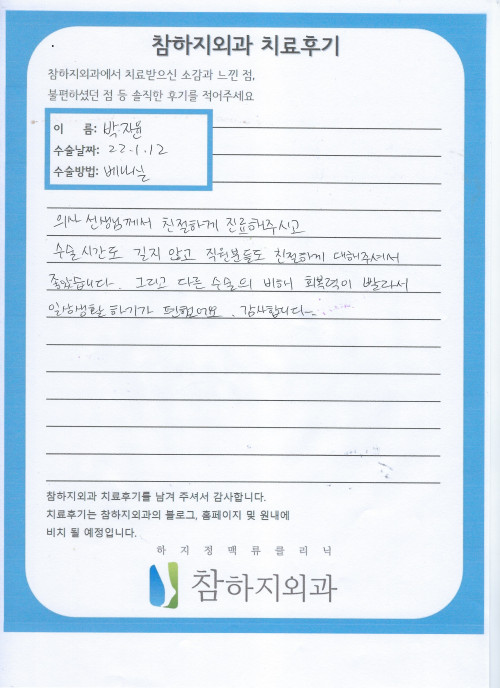 참하지외과 치료후기
참하지외과에서 치료받으신 소감과 느낀 점,
불편하셨던 점 등 솔직한 후기를 적어주세요
이 름: 박지윤
수술날짜: 22.1.12
수술방법: 베나실
의사 선생님께서 친절하게 진료해주시고
수술시간도 길지 않고 직원분들도 친절하게 대해주셔서
좋았습니다. 그리고 다른 수술의 비해 회복력이 빨라서
일상생활 하기가 편했어요. 감사합니다~
참하지외과 치료후기를 남겨 주셔서 감사합니다.
치료후기는 참하지외과의 블로그, 홈페이지 및 원내에
비치 될 예정입니다.
하지정맥류클리닉
참하지외과